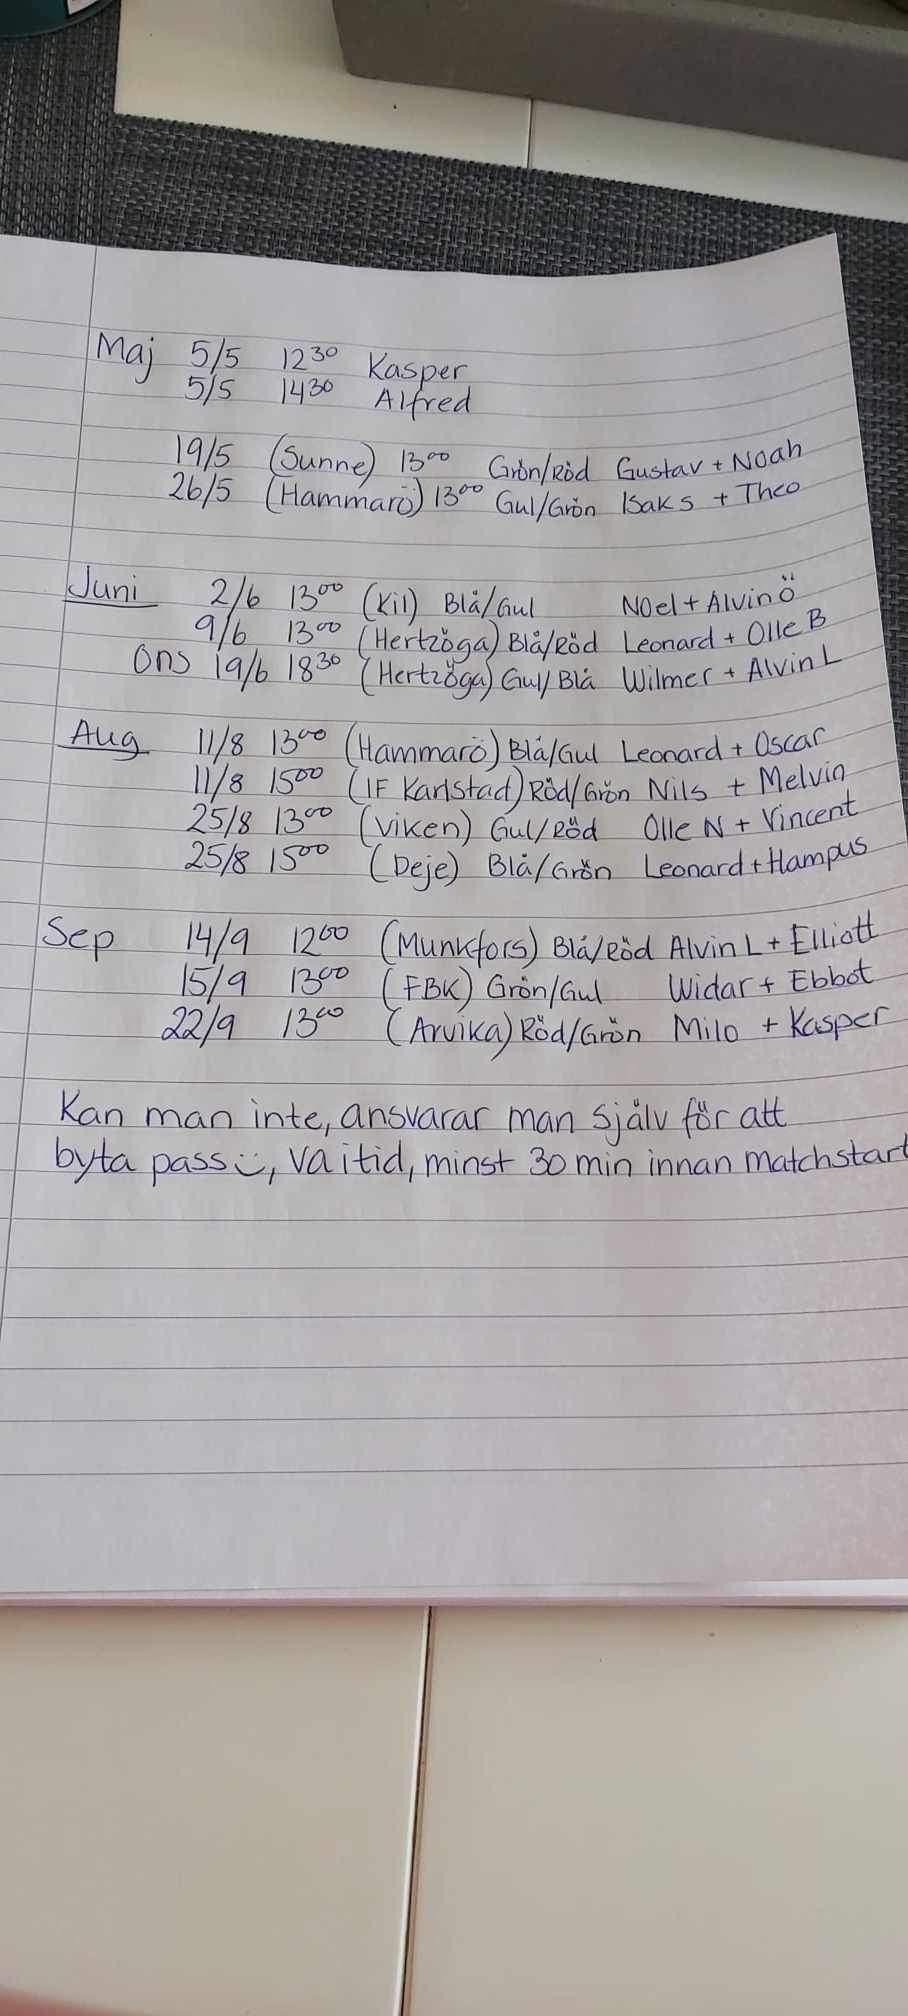 Maj 5/5 12³⁰ Kasper
5/5 14³⁰ Alfred
19/5 (Sunne) 13⁰⁰ Grön/Röd Gustav + Noah
26/5 (Hammarö) 13⁰⁰ Gul/Grön Isak S + Theo
Juni 2/6 13⁰⁰ (Kil) Blå/Gul Noel + Alvin Ö
9/6 13⁰⁰ (Hertzöga) Blå/Röd Leonard + Olle B
Ons 19/6 18³⁰ (Hertzöga) Gul/Blå Wilmer + Alvin L
Aug 11/8 13⁰⁰ (Hammarö) Blå/Gul Leonard + Oscar
11/8 15⁰⁰ (IF Karlstad) Röd/Grön Nils + Melvin
25/8 13⁰⁰ (Viken) Gul/Röd Olle N + Vincent
25/8 15⁰⁰ (Deje) Blå/Grön Leonard + Hampus
Sep 14/9 12⁰⁰ (Munkfors) Blå/Röd Alvin L + Elliott
15/9 13⁰⁰ (FBK) Grön/Gul Widar + Ebbot
22/9 13⁰⁰ (Arvika) Röd/Grön Milo + Kasper
Kan man inte, ansvarar man själv för att
byta pass :), va i tid, minst 30 min innan matchstart